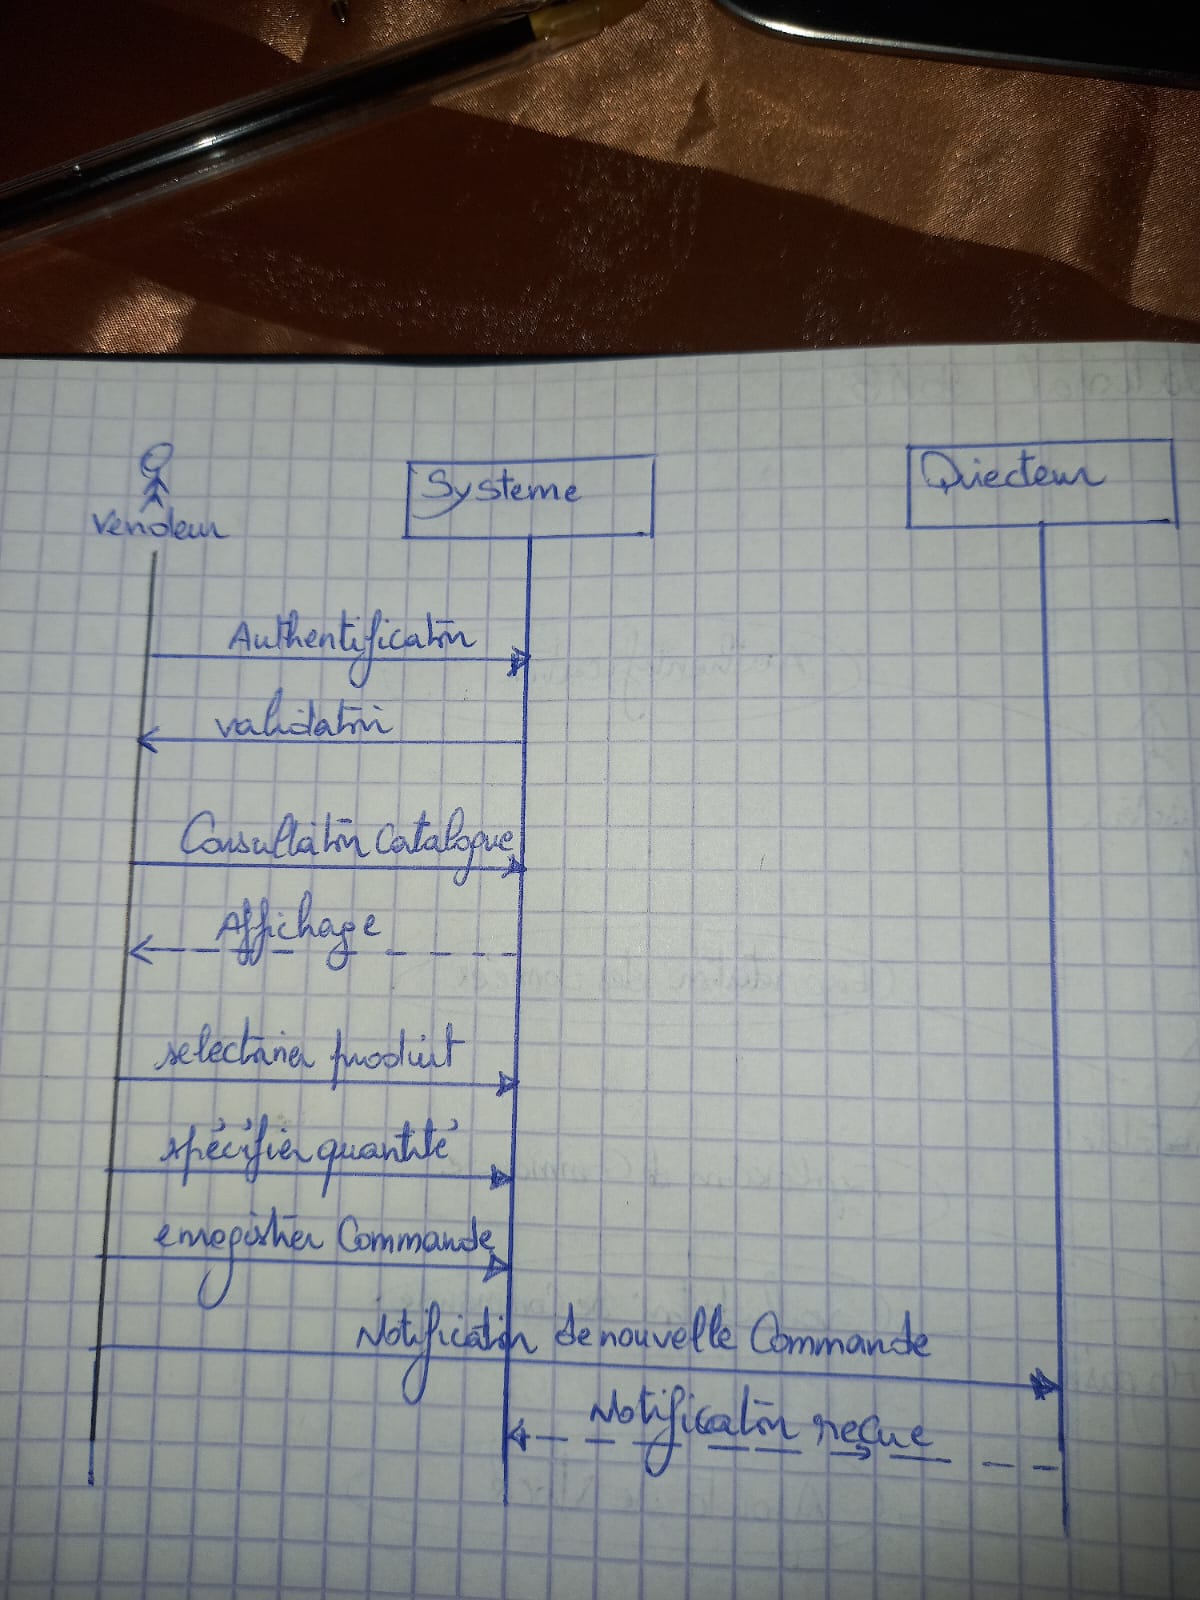 vendeur
Systeme
Directeur
Authentification
validation
Consultation Catalogue
Affichage
selectionner produit
spécifier quantité
enregistrer Commande
Notification de nouvelle Commande
Notification reçue